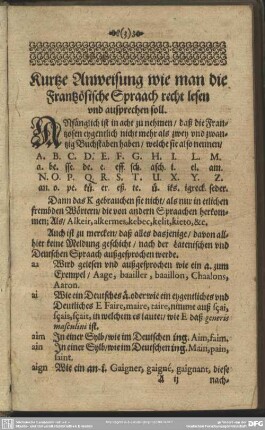 (3)
Kurtze Anweisung wie man die
Frantzösische Spraach recht lesen
vnd ausprechen soll.
ANfänglich ist in acht zu nehmen / daß die Fran-
tzosen eygentlich nicht mehr als zwey vnd zwan-
tzig Buchstaben haben / welche sie also nennen /
A. B. C. D. E. F. G. H. I. L. M.
a. be. sse. de. e. eff. sch. asch. i. el. am.
N. O. P. Q. R. S. T. U. X. Y. Z.
an. o. pe. kü. er. eß. te. ü. iks. igreck. seder.
Dann das K gebrauchen sie nicht / als nur in etlichen
frembden Wörtern / die von andern Spraachen herkom-
men; Als / Alkeir, alkermes, kebec, kelit, kieto, &c.
Auch ist zu mercken / daß alles dasjenige / davon all-
hier keine Meldung geschicht / nach der Lateinischen vnd
Deutschen Spraach außgesprochen werde.
aa Wird geleſen vnd außgesprochen wie ein a. zum
Exempel / Aage, baailler, baaillon, Chaalons,
Aaron.
ai Wie ein Deutsches ä. oder wie ein eygentliches vnd
Deutliches E. Faire, maire, taire, nimme auß sçai,
sçais, sçait, in welchem es lautet / wie E daß generis
masculini ist.
aim In einer Sylb / wie im Deutschen ing. Aim, faim.
ain In einer Sylb / wie im Deutschen ing. Main, pain,
saint.
aign Wie ein an-i. Gaigner, gaigné, gaignant, diese
A ij nach-